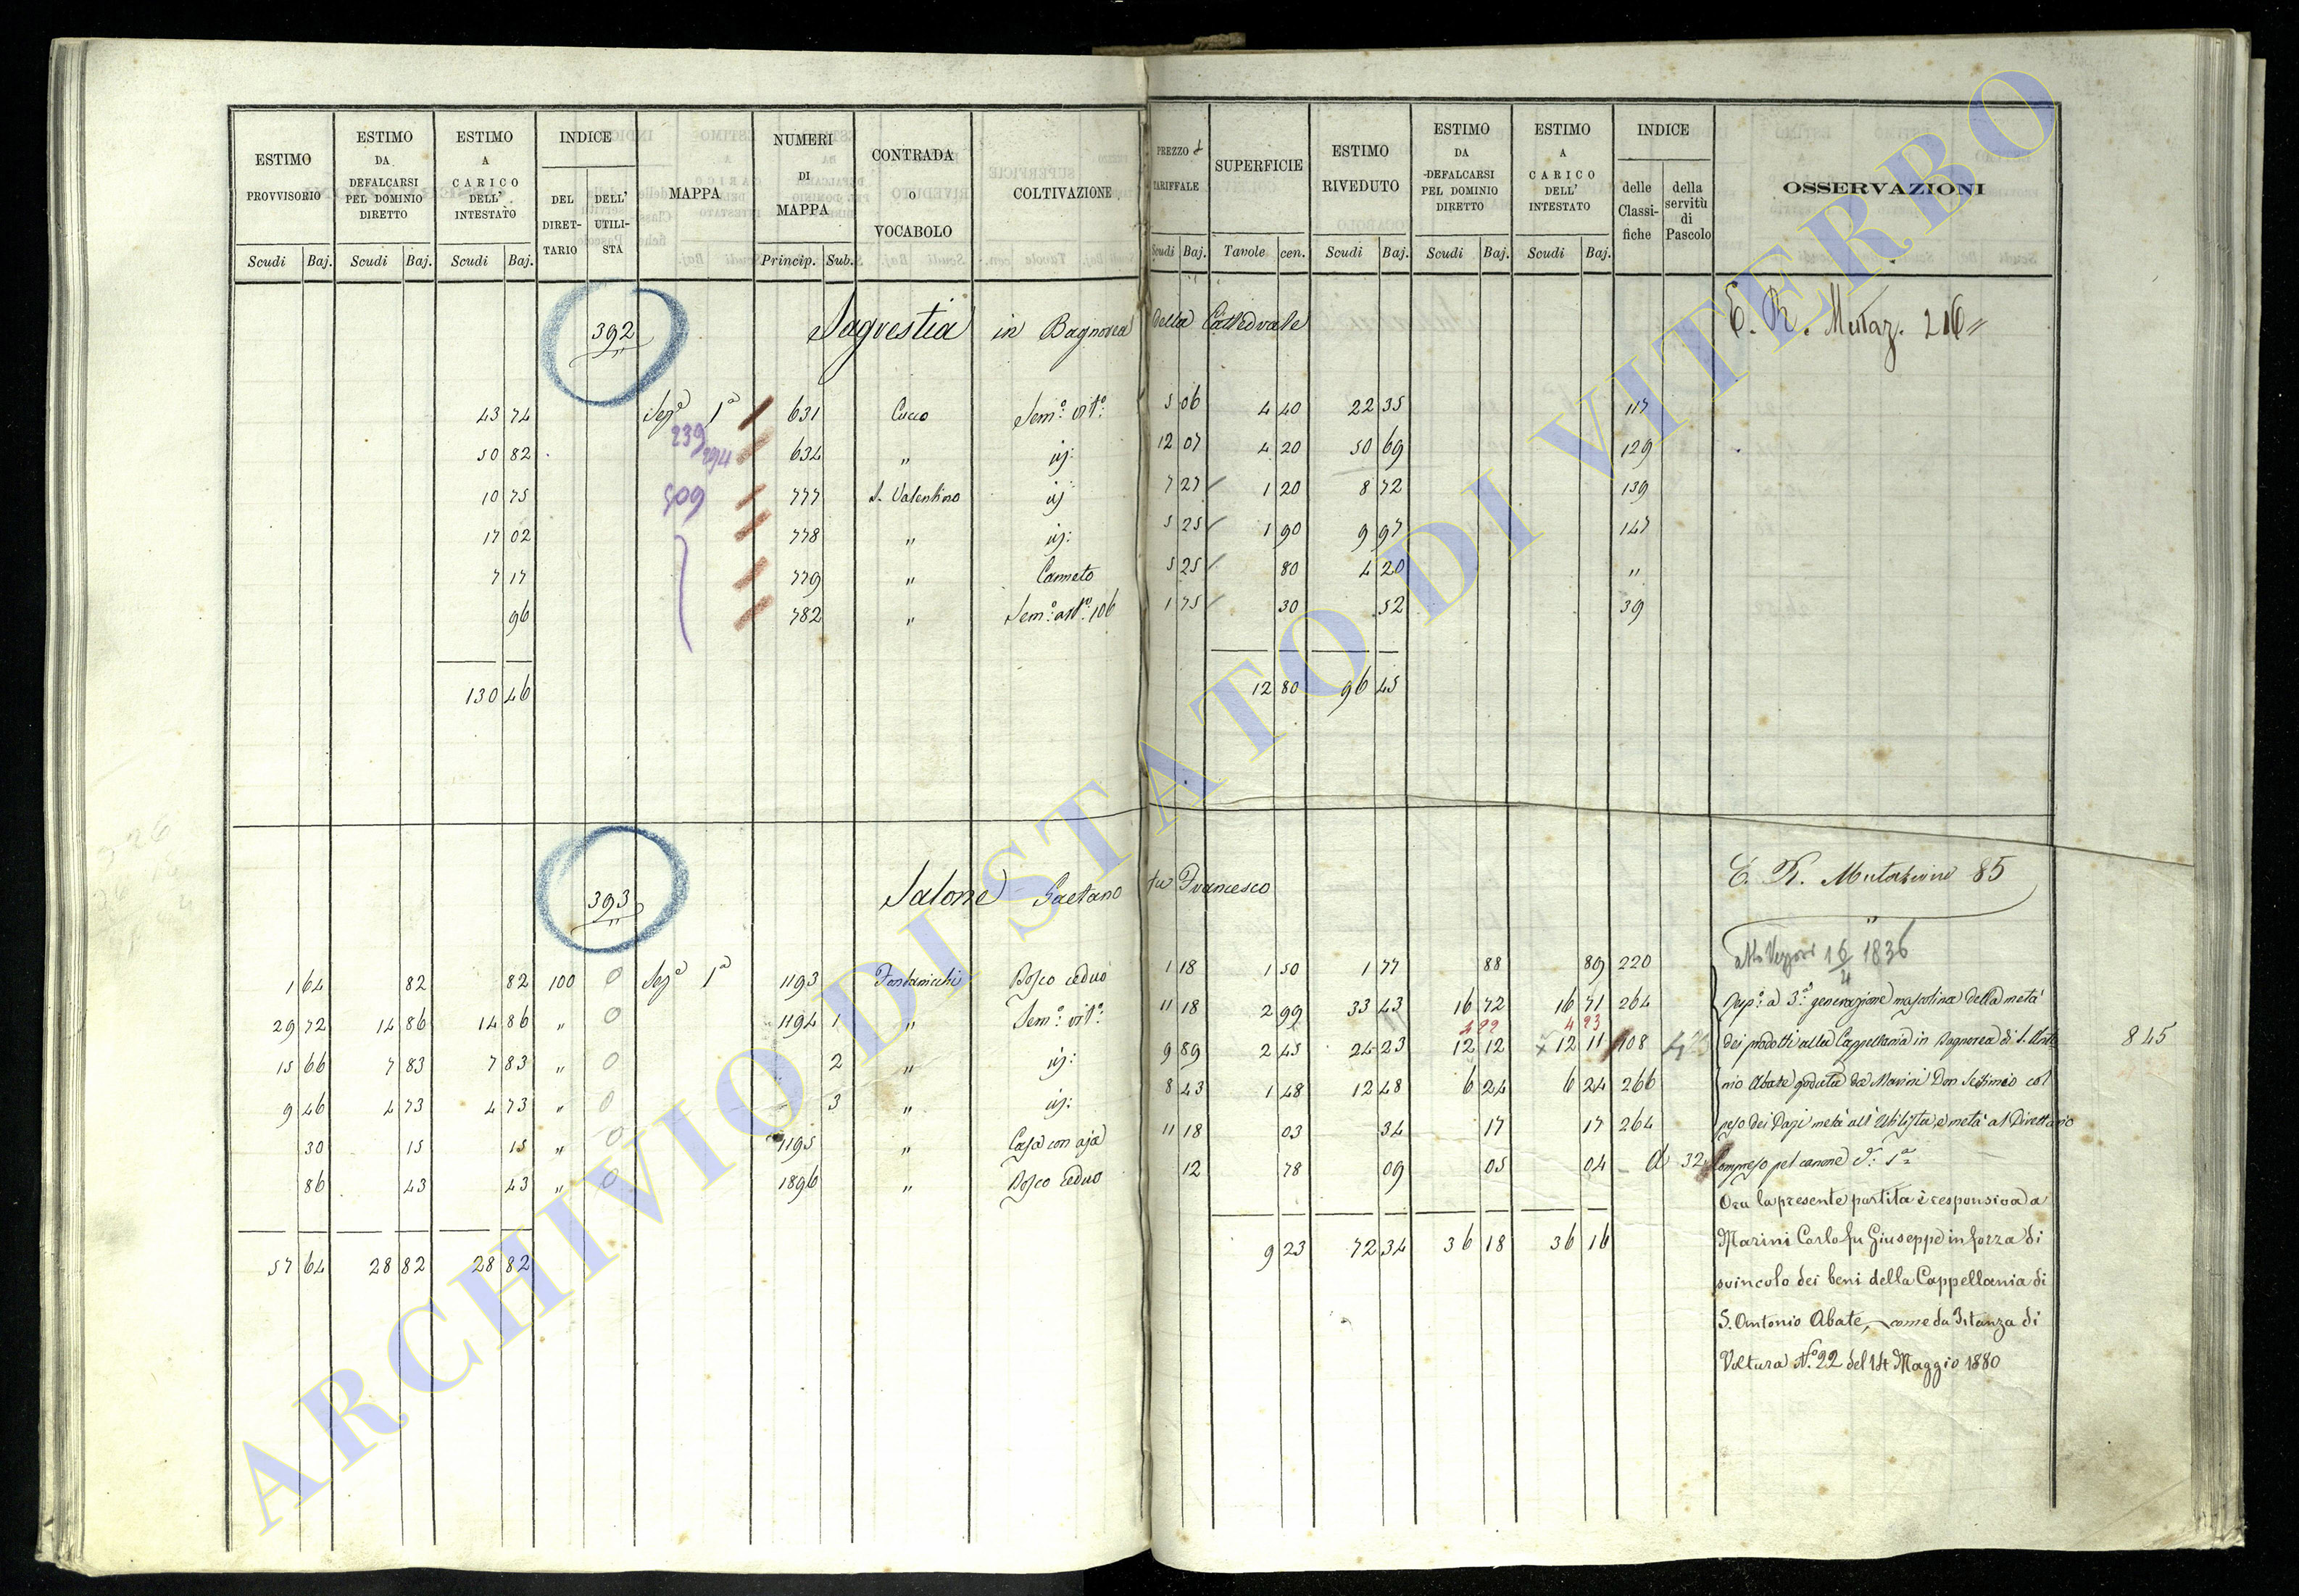 ESTIMO PROVVISORIO
ESTIMO DA DEFALCARSI PEL DOMINIO DIRETTO
ESTIMO A CARICO DELL' INTESTATO
INDICE
DEL DIRET-TARIO
DELL' UTILI-STA
MAPPA
NUMERI DI MAPPA
CONTRADA o VOCABOLO
COLTIVAZIONE
PREZZO TARIFFALE
SUPERFICIE
ESTIMO RIVEDUTO
ESTIMO DA DEFALCARSI PEL DOMINIO DIRETTO
ESTIMO A CARICO DELL' INTESTATO
INDICE
delle Classi-fiche
della servitù di Pascolo
OSSERVAZIONI
Scudi Baj. Scudi Baj. Scudi Baj. Princip. Sub. Scudi Baj. Tavole cen. Scudi Baj. Scudi Baj. Scudi Baj.
392 Sagrestia in Bagnorea della Cattedrale E. R. Mutaz. 216
43 74 Sez.ª 1ª 631 Cucco Sem.º vit.º 5 06 4 40 22 35 117
239
294
50 82 634 " id: 12 07 4 20 50 69 129
10 75 509 777 S. Valentino id 7 27 1 20 8 72 139
17 02 778 " id: 5 25 1 90 9 97 147
7 17 779 " Canneto 5 25 80 4 20 "
96 782 " Sem.º ast.º 106 1 75 30 52 39
130 46 12 80 96 45
393 Salone Gaetano fu Francesco E. R. Mutazione 85
16/4 1836
1 64 82 82 100 0 Sez.ª 1ª 1193 Bosco ceduo 1 18 1 50 1 77 88 89 220
29 72 14 86 14 86 " 0 1194 1 " Sem.º vit.º 11 18 2 99 33 43 16 72 16 71 264 Risp.ª a 3ª generazione mascolina della metà
4 22 4 23
15 66 7 83 7 83 " 0 2 " id: 9 89 2 45 24 23 12 12 12 11 108 dei prodotti alla Cappellania in Bagnorea di S. Anto 845
9 46 4 73 4 73 " 0 3 " id: 8 43 1 48 12 48 6 24 6 24 266 nio Abate goduta da Marini Don Settimio col
30 15 15 " 0 1195 " Casa con aja 11 18 03 34 17 17 264 peso dei Dazi metà all' Utilista, e metà al Direttario
86 43 43 " 0 1896 " Bosco ceduo 12 78 09 05 04 32 Compreso pel canone
Ora la presente partita è responsiva a
57 64 28 82 28 82 9 23 72 34 36 18 36 16 Marini Carlo fu Giuseppe in forza di
svincolo dei beni della Cappellania di
S. Antonio Abate, come da Istanza di
Voltura N.º 22 del 14 Maggio 1880
ARCHIVIO DI STATO DI VITERBO